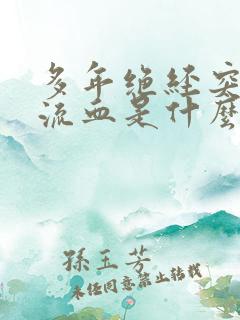 多年绝经突
流血是什麽
孫玉芳
未经同意禁止转载